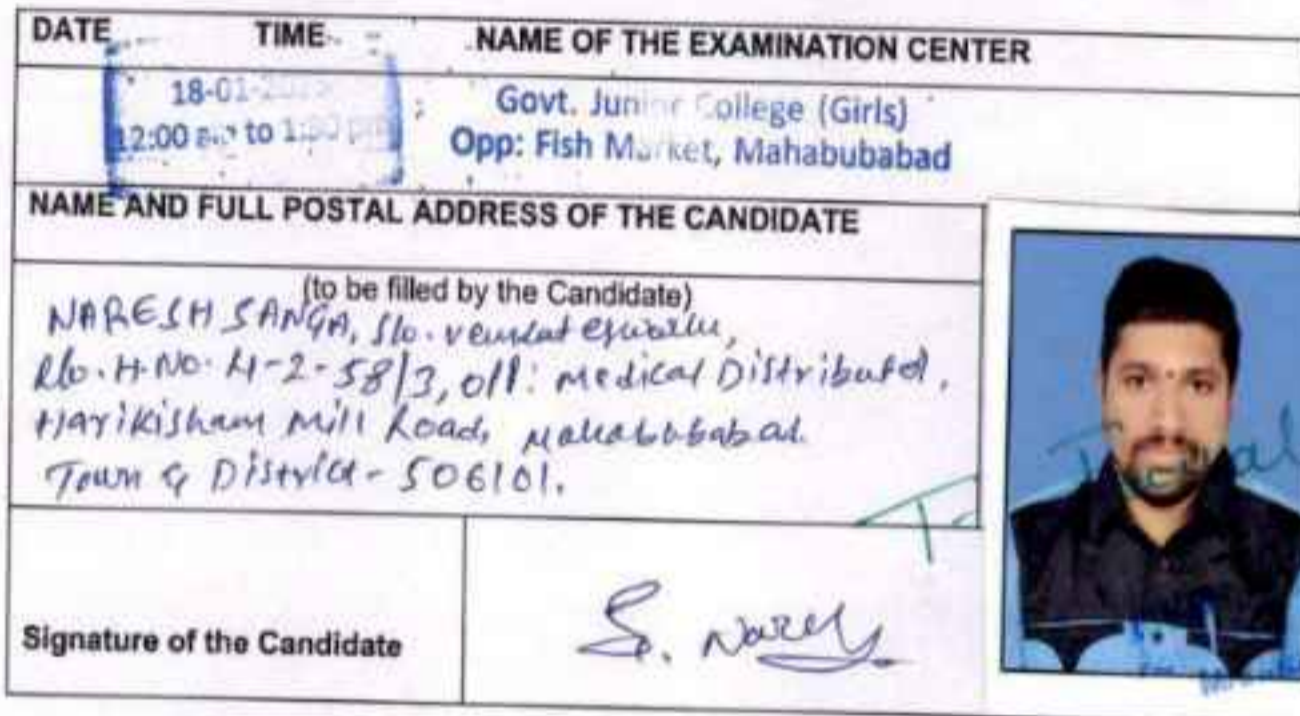 DATE TIME NAME OF THE EXAMINATION CENTER
18-01-
12:00 to
Govt. Junior College (Girls)
Opp: Fish Market, Mahabubabad
NAME AND FULL POSTAL ADDRESS OF THE CANDIDATE
(to be filled by the Candidate)
NARESH SANGA, S/o. venkateswarlu,
R/o. H.NO. 4-2-58/3, opp: Medical Distributor,
Harikisham Mill Road, Mahabubabad
Town & District - 506101.
Signature of the Candidate
S. Naresh